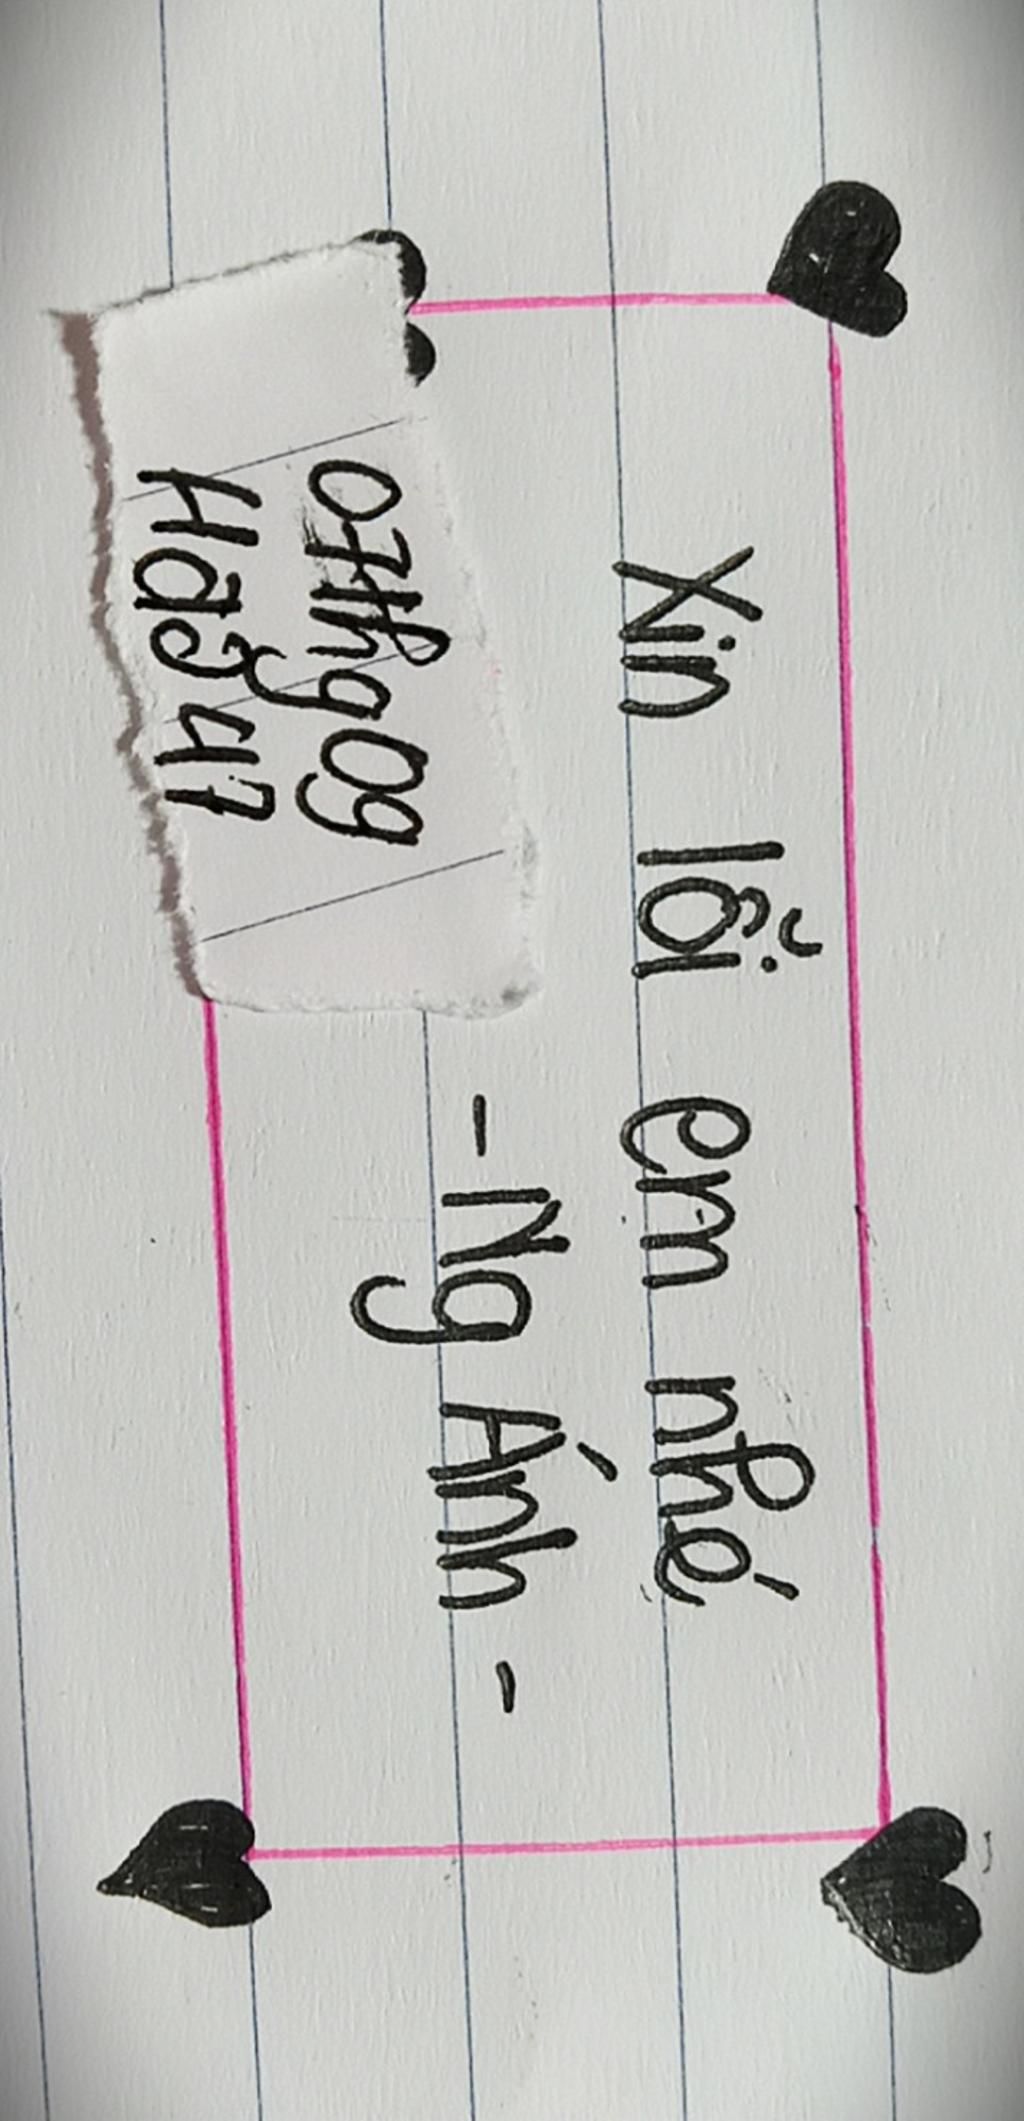 Xin lỗi em nhé
- Ng Ánh -
07thg09